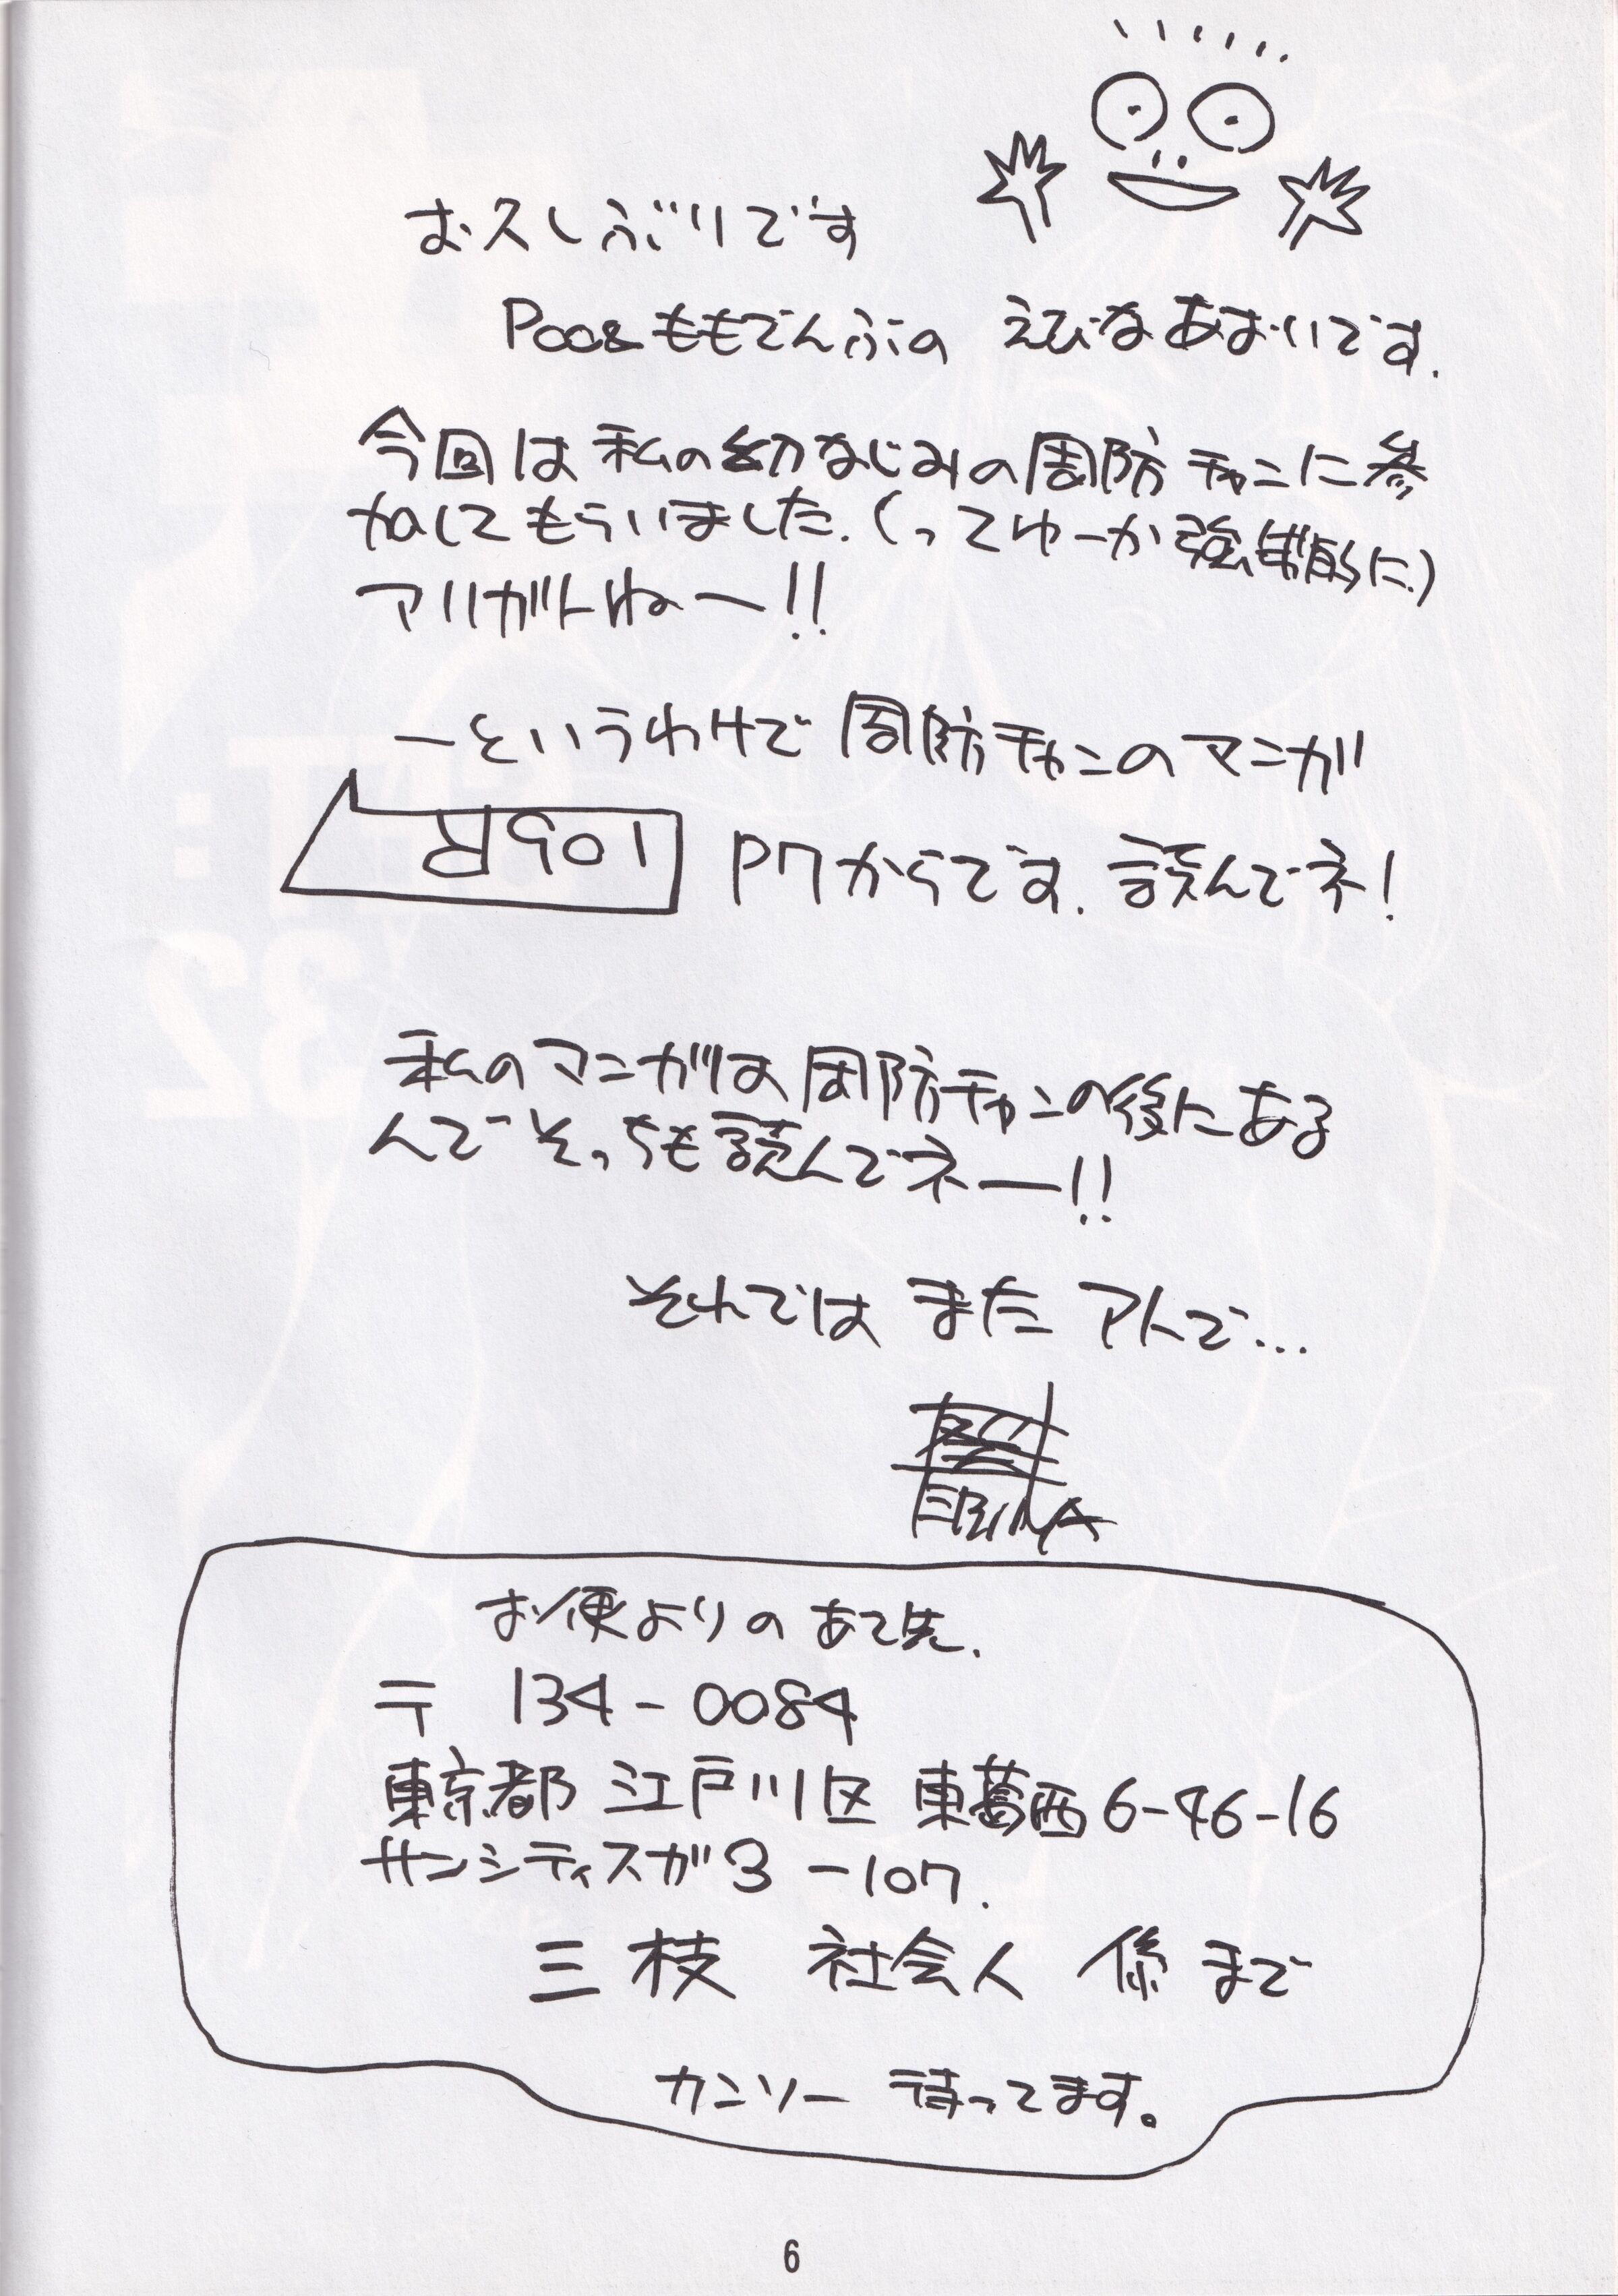 お久しぶりです
Poo& ももでんぶの えびなあおいです.
今回は 私の幼なじみの周防チャンに参
加してもらいました.(ってゆーか強制的に.)
アリガトねー!!
ーというわけで 周防チャンのマンガ
P7からです. 読んでネ!
私のマンガは周防チャンの後にある
んで そっちも読んでネー!!
それでは また アトで...
EBINA
お便よりの あて先.
〒 134-0084
東京都 江戸川区 東葛西6-46-16
サンシティスガ3 -107.
三枝 社会人 係 まで
カンソー 待ってます。
6